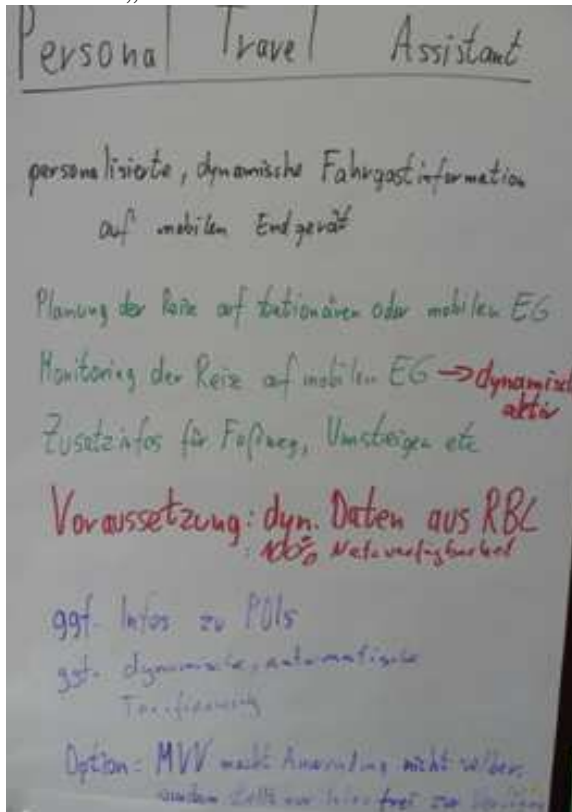 Personal Travel Assistant
personalisierte, dynamische Fahrgastinformation
auf mobilen Endgerät
Planung der Reise auf stationären oder mobilen EG
Monitoring der Reise auf mobilen EG → dynamisch
aktiv
Zusatzinfos für Fußweg, Umsteigen etc
Voraussetzung: dyn. Daten aus RBL
: 100% Netzverfügbarkeit
ggf. Infos zu POIs
ggf. dynamische, automatische
Tarifierung
Option: MVV macht Anwendung nicht selber,
sondern stellt nur Infos frei zur